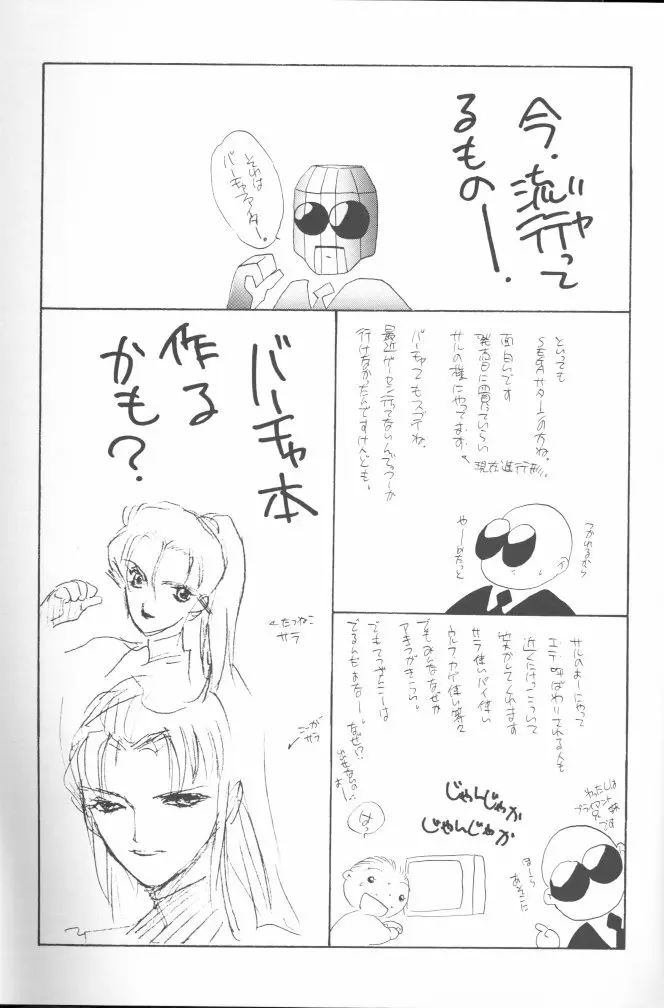 今、流行って
るものー。
ジャ
それは
バーチャファイター。
といっても
SEGAサターンの方ね。
面白いです
発売日に買っていらい
サルの様にやってます。
現在進行形。
バーチャでもスプデイね。
最近ゲーセン行ってないんでつーか
行けなかったんですけども。
つかれるから
やーめたっと
バーチャ本
作る
かも?
←たつねこ
サラ
こがサラ
サルのよーにやって
近くにけっこういて
笑かしてくれます
サラ使いパイ使い
ウルフカゲ使い等々
でもみんななぜか
アキラがきらい。
でるんだよなー。なぜ?
じゃんじゃか
じゃんじゃか
はっ
わたしは
ブライアント
です
ほーら
あそこに